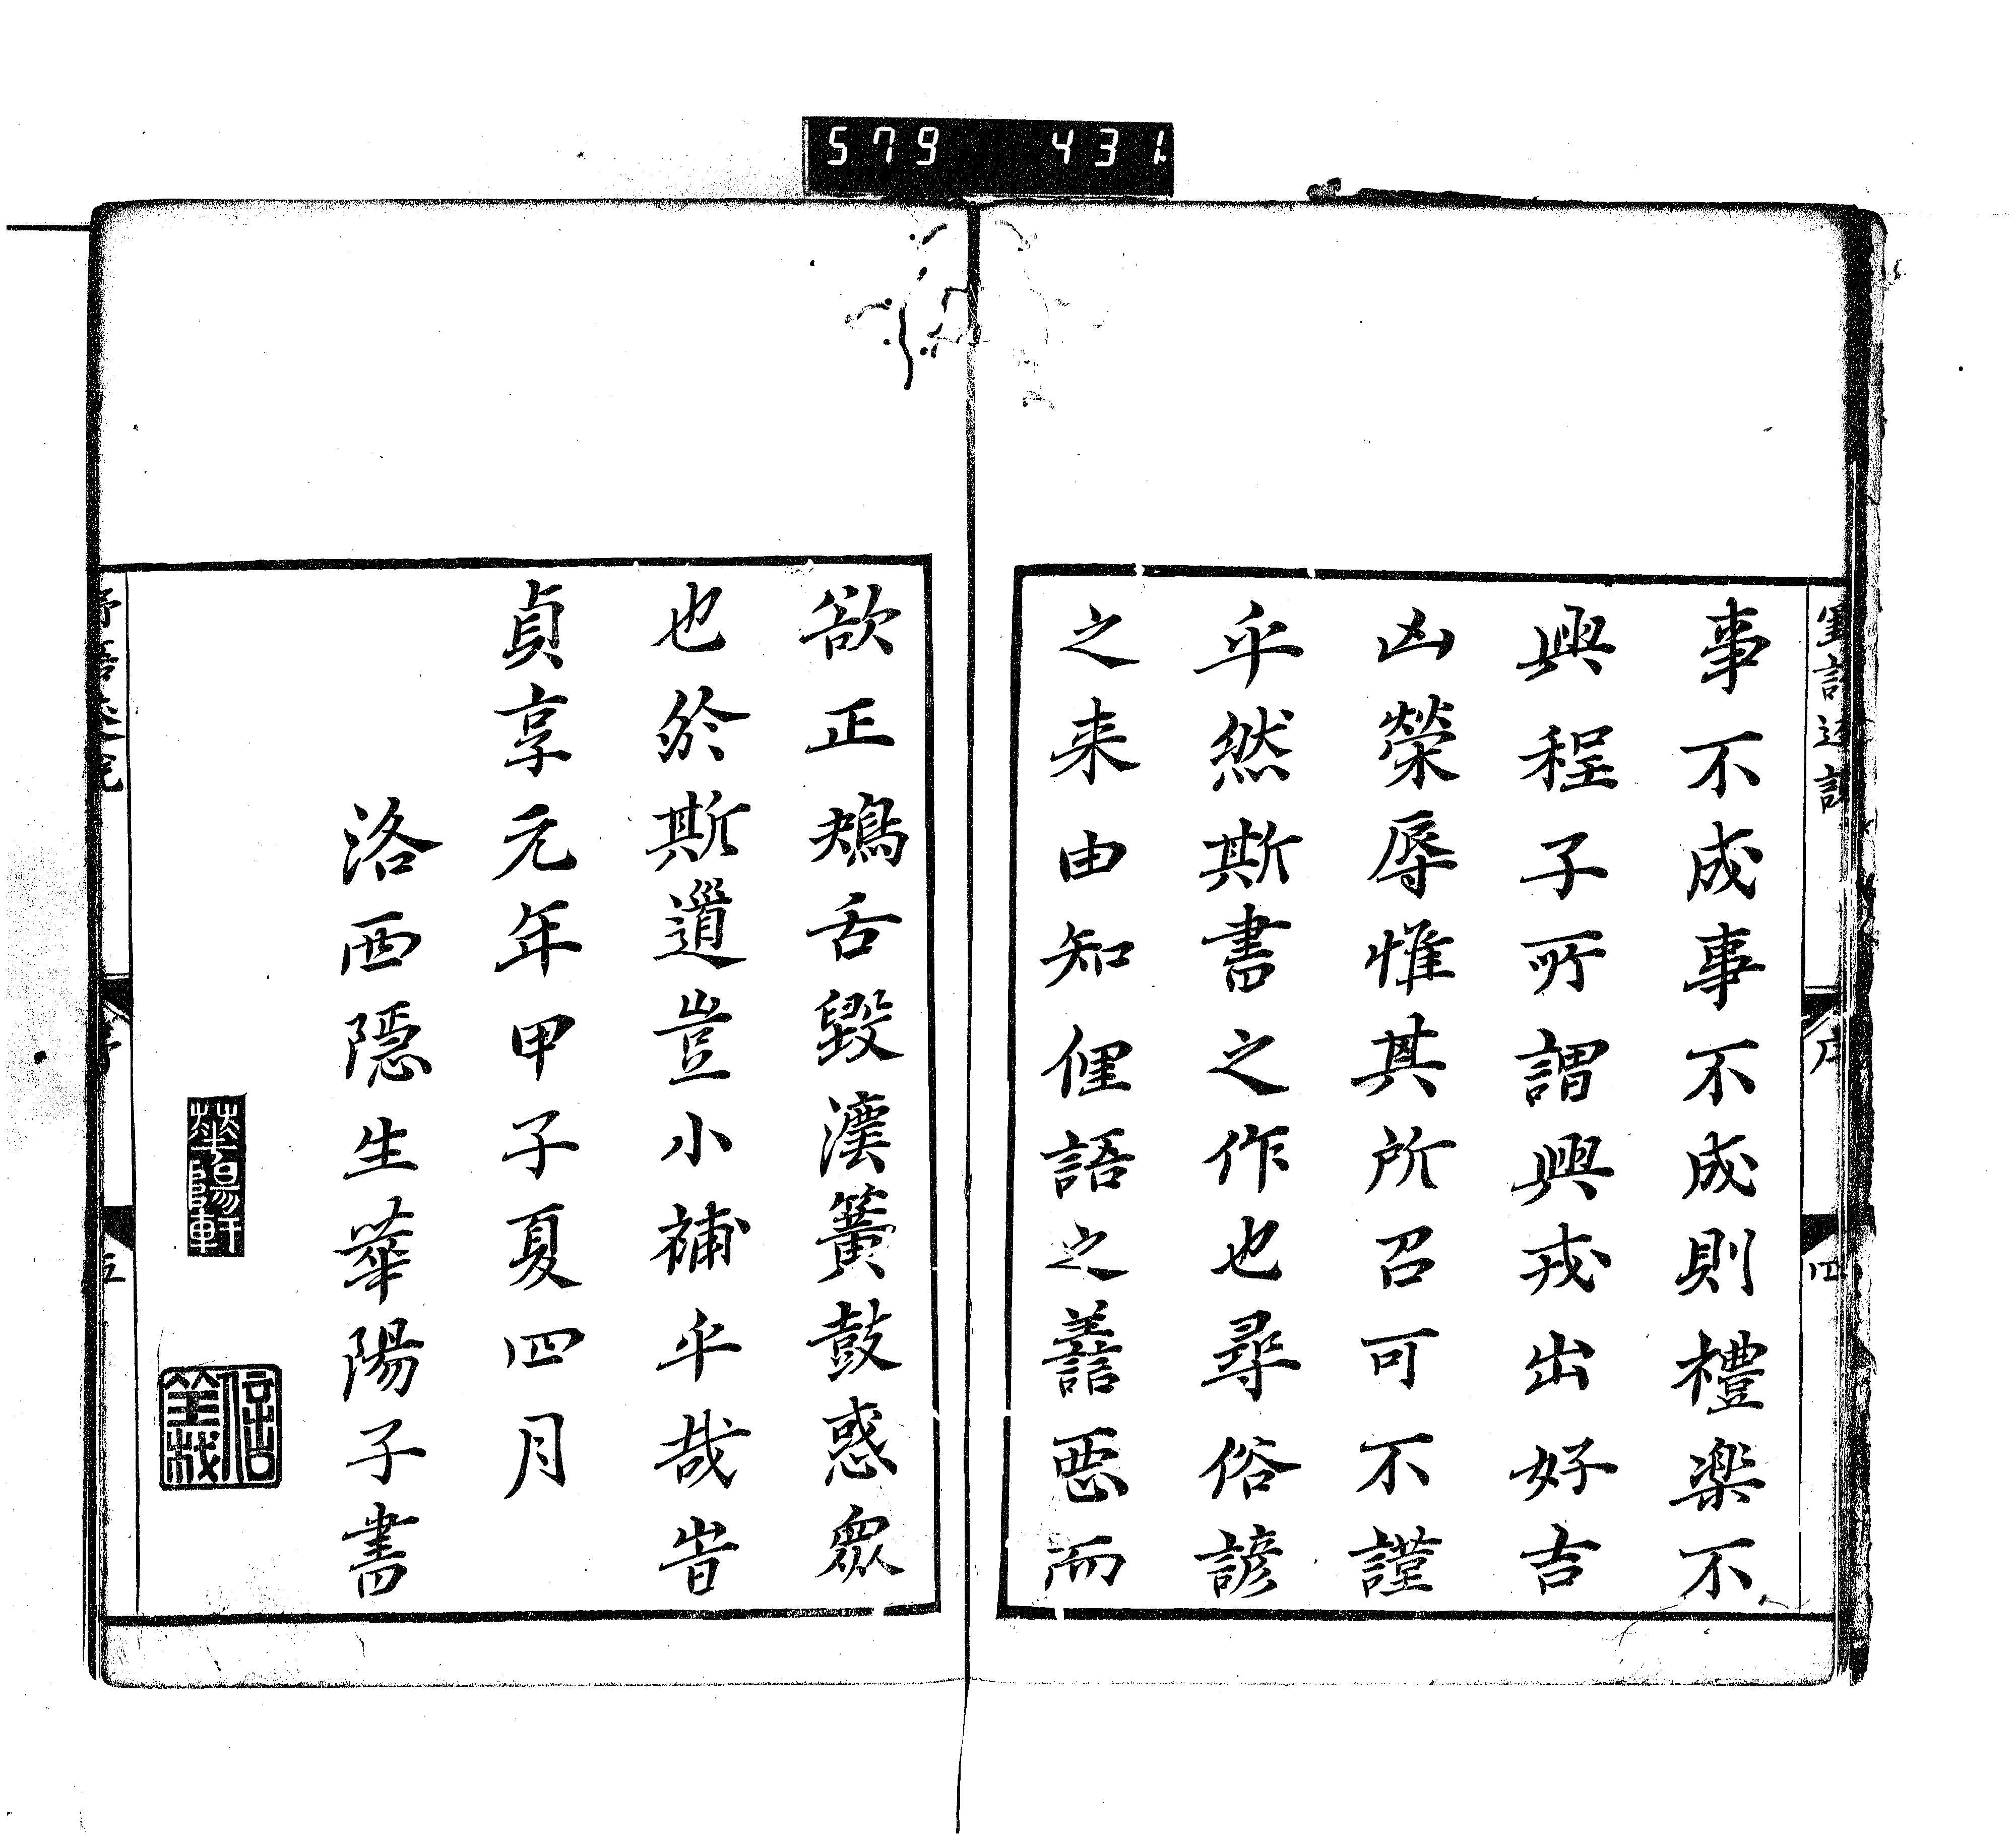 579 431
事不成事不成則禮楽不
興程子所謂興戎出好吉
凶榮辱惟其所召可不謹
乎然斯書之作也尋俗諺
之来由知俚語之譱悪而
序
四
欲正鴂舌毀漢簧鼓惑眾
也於斯道豈小補乎哉旹
貞享元年甲子夏四月
洛西隠生華陽子書
華陽軒
五